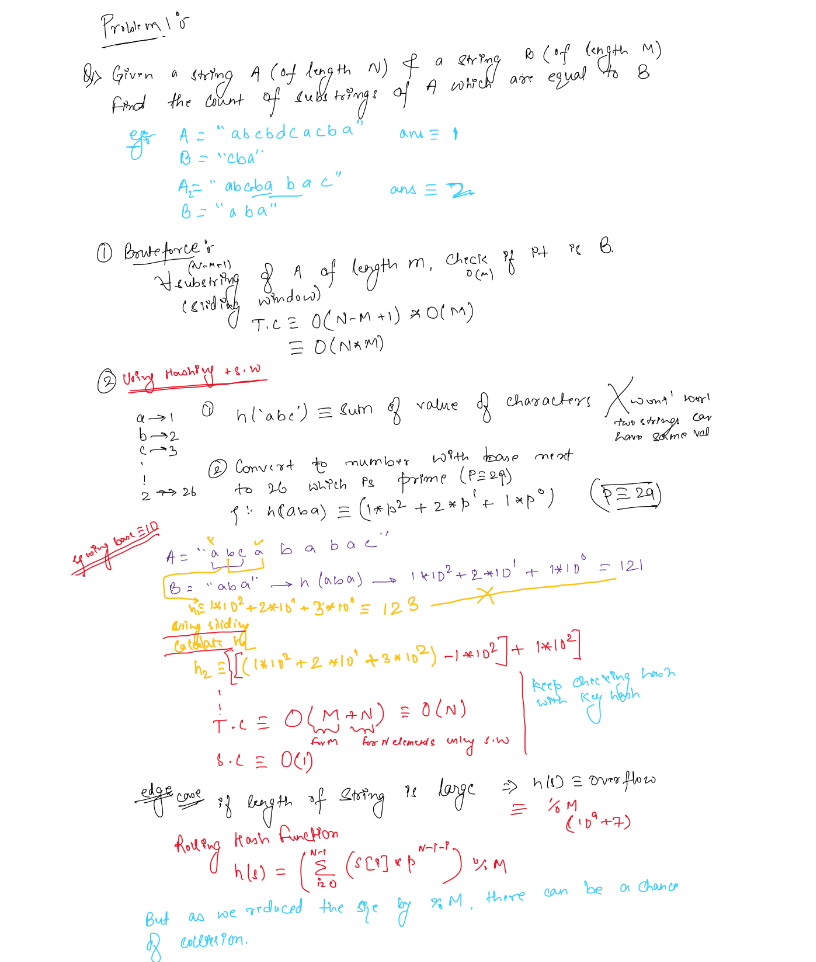 Problem 1 :-
Q> Given a string A (of length N) & a string B (of length M)
find the count of substrings of A which are equal to B
eg:- A = "abcbdcacba" ans ≡ 1
B = "cba"
A2 = "abcbababac" ans ≡ 2
B = "aba"
① Bruteforce :-
(N-M+1)
∀ substring of A of length m, check if it is B.
O(M)
(sliding window)
T.C ≡ O(N-M+1) * O(M)
≡ O(N*M)
② Using Hashing + S.W
a → 1
b → 2
c → 3
z → 26
① h('abc') ≡ sum of value of characters X won't work
two strings can
have same val
② Convert to number with base next
to 26 which is prime (P≡29)
h(aba) ≡ (1*p² + 2*p¹ + 1*p⁰) (P≡29)
using base ≡ 10
A = "abcababac"
B = "aba" → h(aba) → 1*10² + 2*10¹ + 1*10⁰ = 121
h ≡ 1*10² + 2*10¹ + 3*10⁰ ≡ 123 X
using sliding
calculate
h2 ≡ {[(1*10² + 2*10¹ + 3*10²) - 1*10²] + 1*10²]
keep checking hash
with key hash
T.C ≡ O(M+N) ≡ O(N)
for M for N elements using S.W
S.C ≡ O(1)
edge case if length of string is large ⇒ h(s) ≡ overflow
≡ % M
(10⁹+7)
Rolling Hash Function
h(s) = (Σ (s[i] * p^N-1-i) % M
N-1
i=0
But as we reduced the size by % M, there can be a chance
of collision.